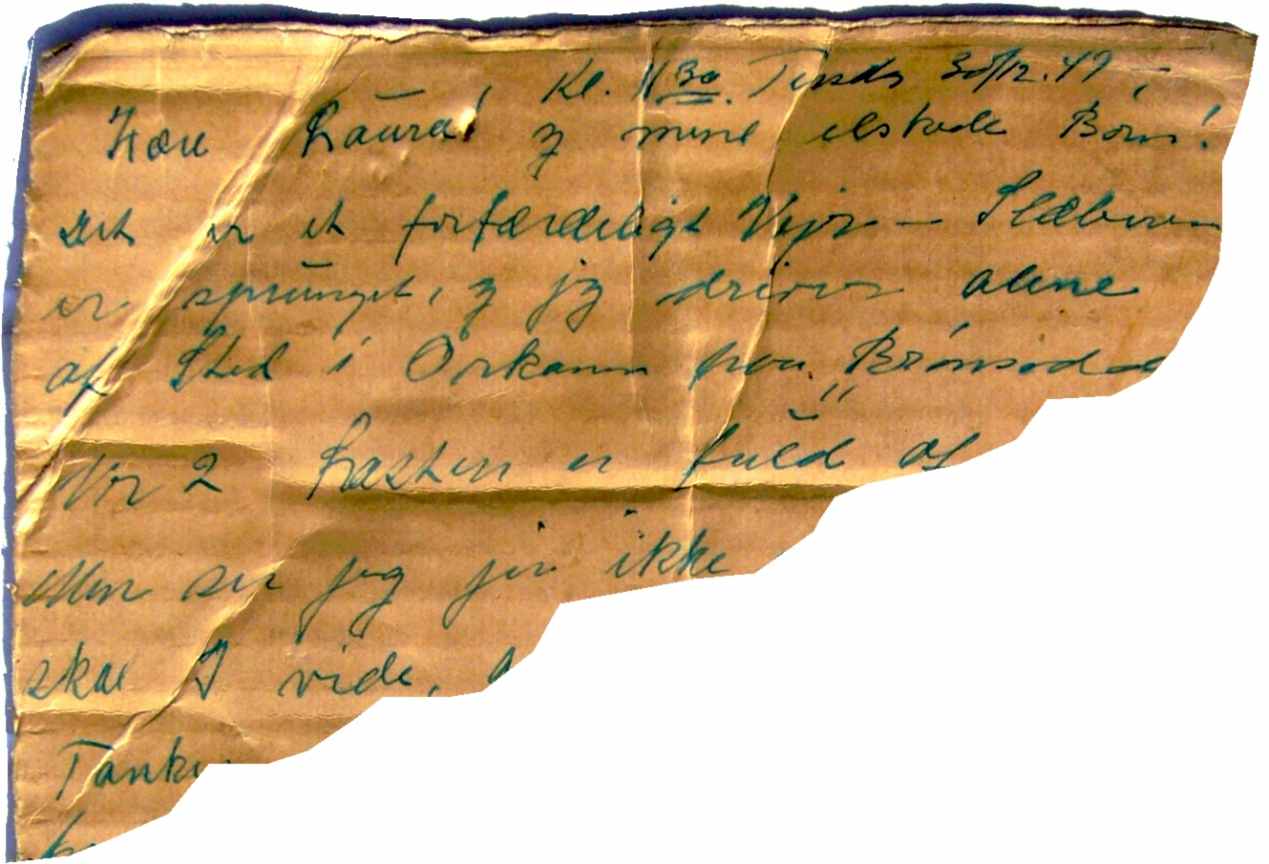 Kl. 11 30. Tirsda 30/12.49,
Kære Laura! og mine elskede Børn!
Det er et forfærdeligt Vejr — Slæberen
er sprunget, og jeg driver alene
af Sted i Orkanen paa "Brønsodde
Nr 2 Lasten er fuld af
Men ser jeg jer ikke
skal I vide,
Tanker